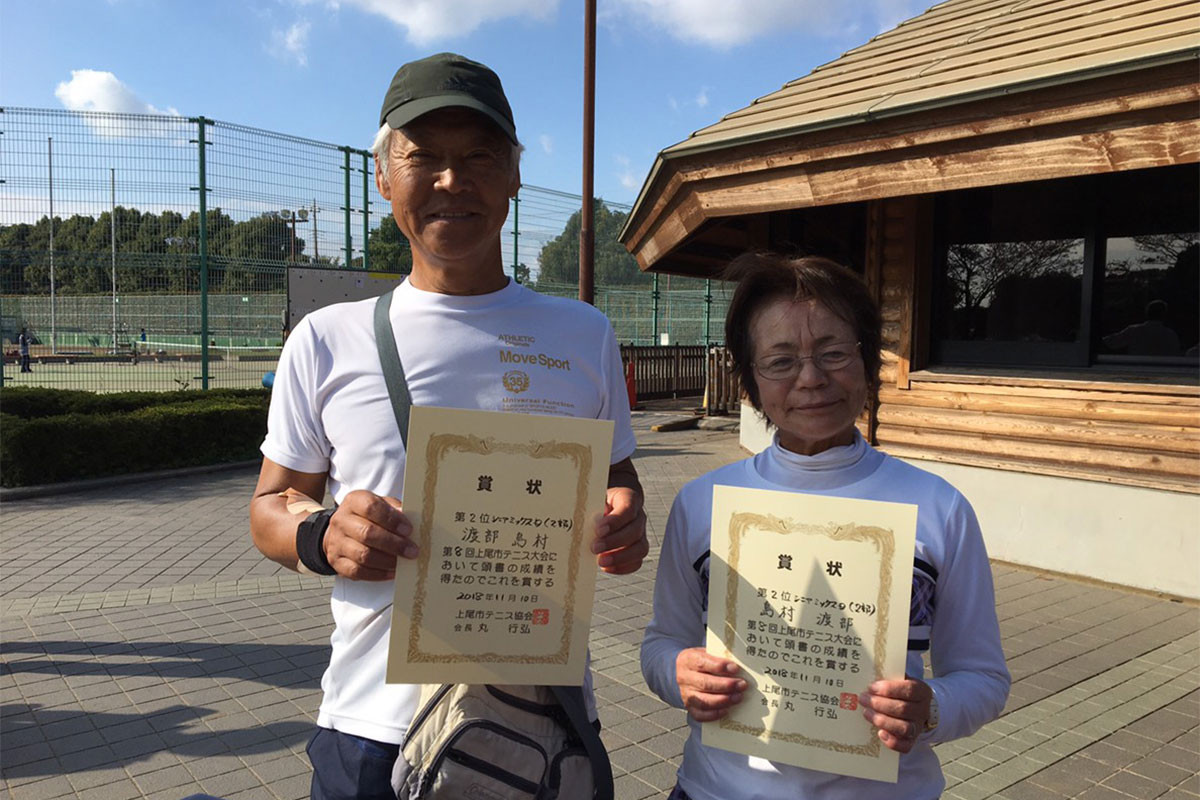 ATHLETIC
Move Sport
35
Universal Function
賞 状
第2位 シニアミックスD(2部)
渡部 島村
第8回上尾市テニス大会に
おいて頭書の成績を
得たのでこれを賞する
2018年11月10日
上尾市テニス協会
会長 丸 行弘
賞 状
第2位 シニアミックスD(2部)
島村 渡部
第8回上尾市テニス大会に
おいて頭書の成績を
得たのでこれを賞する
2018年11月10日
上尾市テニス協会
会長 丸 行弘